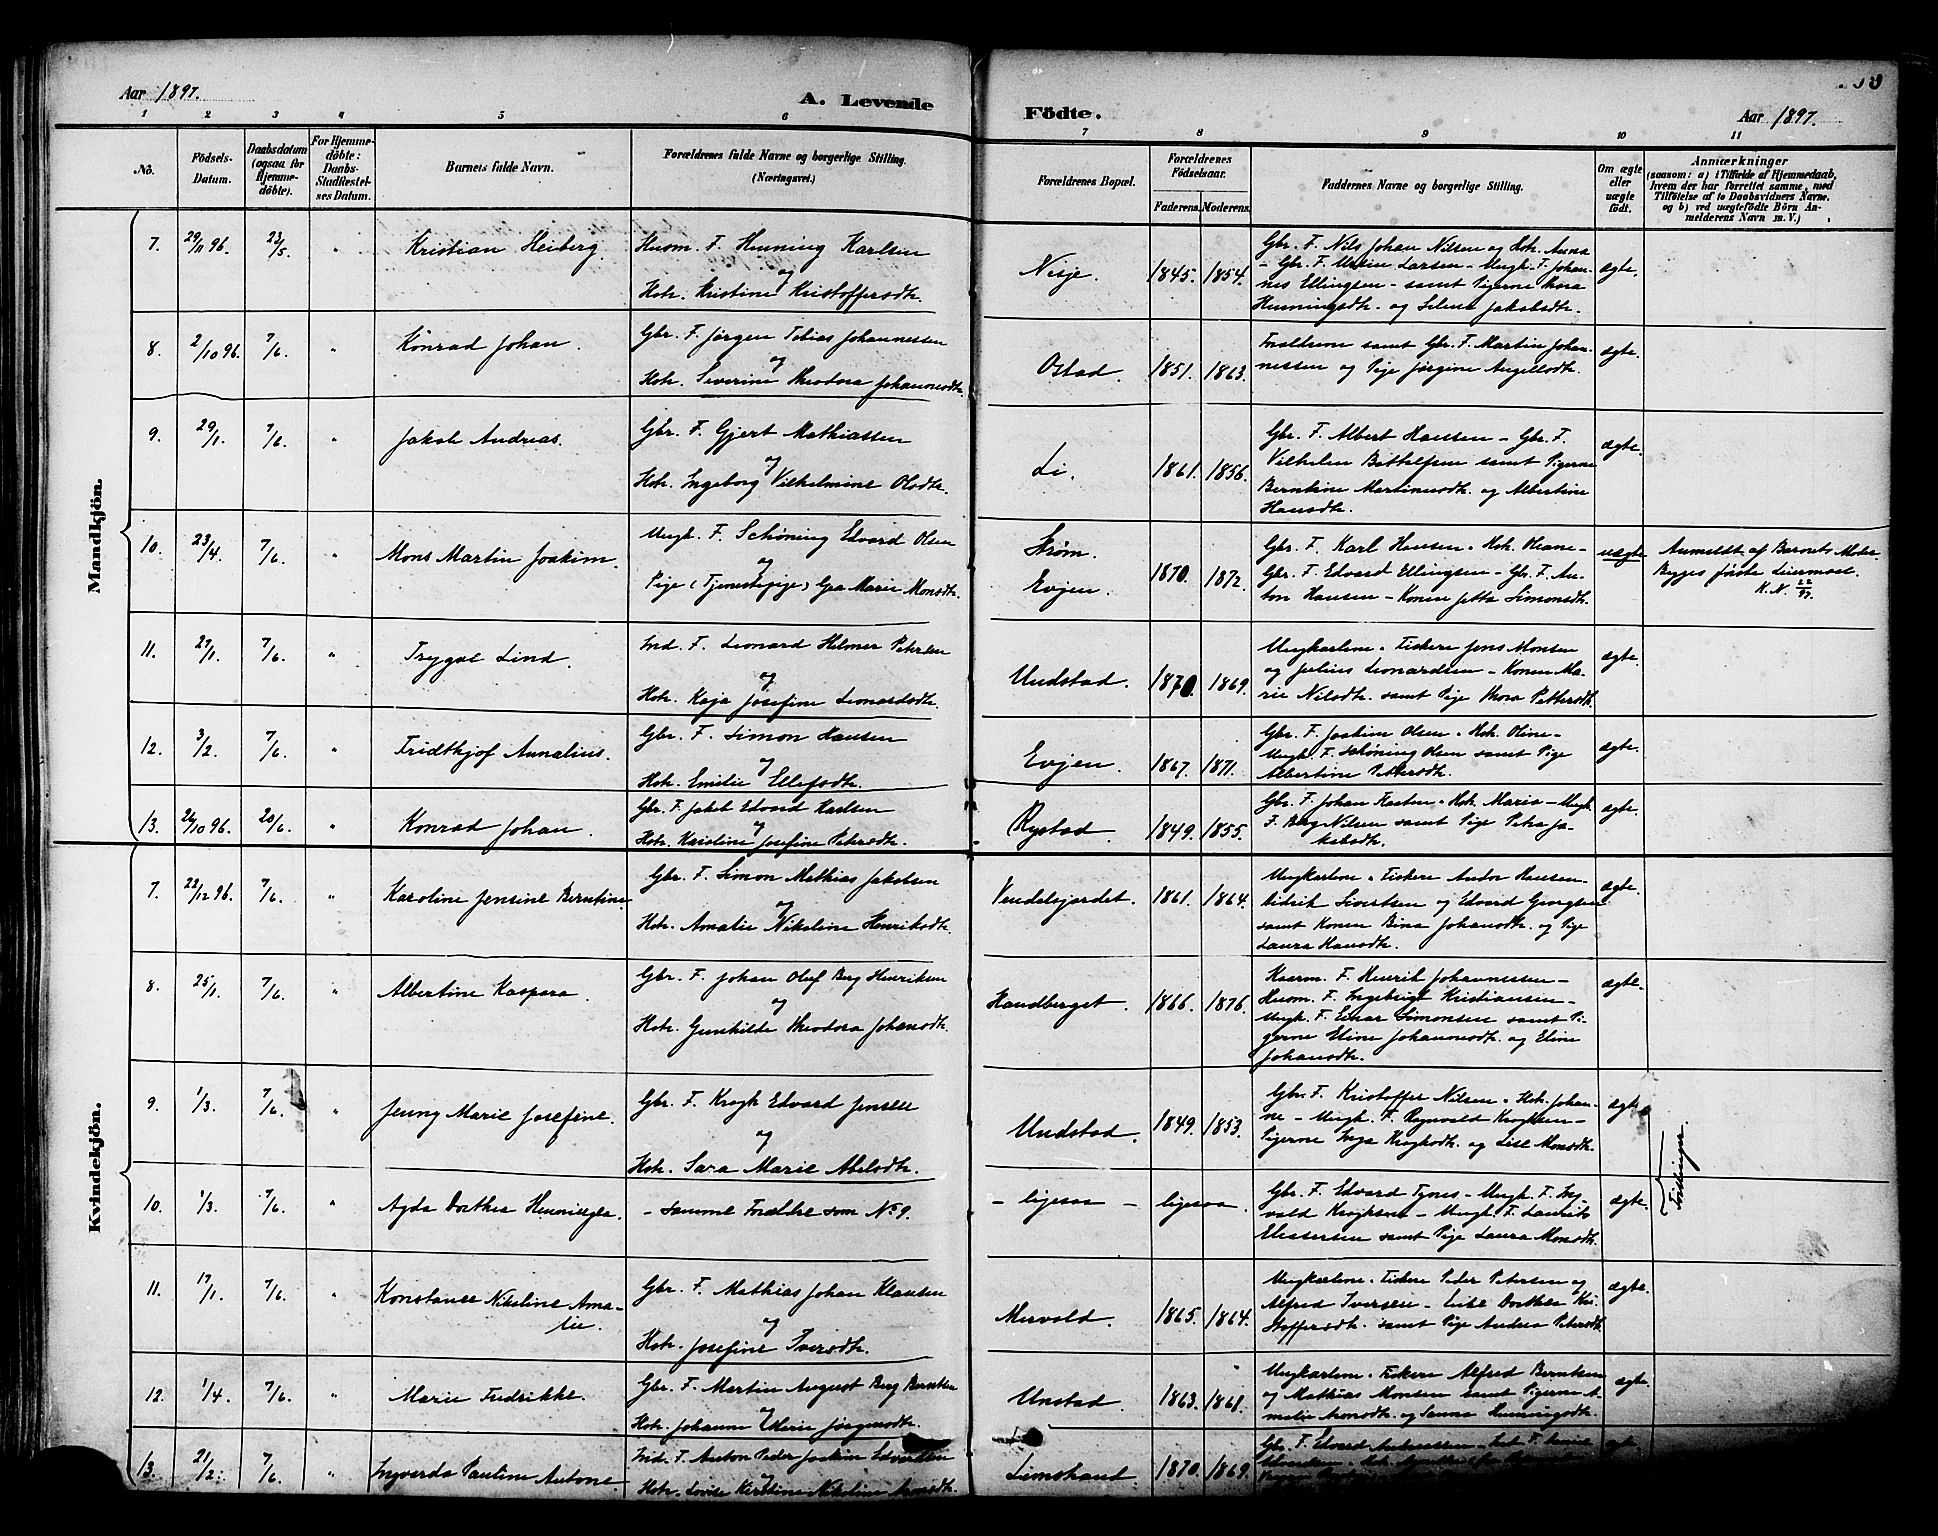 Aar 1897.
A. Levende Födte.
Aar 1897.
1 2 3 4 5 6 7 8 9 10 11
No.
Födsels-Datum.
Daabsdatum (ogsaa for Hjemme-döbte).
For Hjemme-döbte: Daabs-Stadfestel-ses Datum.
Barnets fulde Navn.
Forældrenes fulde Navne og borgerlige Stilling. (Næringsvei.)
Forældrenes Bopæl.
Forældrenes Födselsaar.
Faderens. Moderens.
Faddernes Navne og borgerlige Stilling.
Om ægte eller uægte födt.
Anmærkninger
(saasom: a) i Tilfælde af Hjemmedaab, hvem der har forrettet samme, med Tilföielse af to Daabsvidners Navne, og b) ved uægtefödte Börn Anmelderens Navn m. V.)
Mandkjön.
7. 29/11 96. 23/5. " Kristian Heiberg.
Husm. F. Henning Karlsen
og
Hstr. Kristine Kristoffersdtr.
Nesje. 1845. 1854.
Gbr. F. Nils Johan Nilsen og Hstr. Anna
- Gbr. F. Larsen - Ungk. F. Johan-
nes Ellingsen - samt Pigerne Thora
Henningsdtr. og Jakobsdtr.
ægte.
8. 2/10 96. 7/6. " Konrad Johan.
Gbr. F. Jørgen Tobias Johannessen
og
Hstr. Severine Theodora Johannesdtr.
Ostad. 1851. 1863.
Forældrene samt Gbr. F. Martin Johan-
nessen og Pige Jørgine Angellsdtr.
ægte.
9. 29/1. 7/6. " Jakob Andreas.
Gbr. F. Gjert Mathiassen
og
Hstr. Ingeborg Vilhelmine Olsdtr.
Li. 1861. 1856.
Gbr. F. Albert Hansen - Gbr. F.
Vilhelm samt Pigerne
Berntine Martinusdtr. og Albertine
Hansdtr.
ægte.
10. 23/4. 7/6. " Mons Martin Joakim.
Ungk. F. Schöning Edvard Olsen
og
Pige (Tjenestepige) Gea Marie Monsdtr.
Strøm.
Evjen. 1870. 1872.
Gbr. F. Karl Hansen. Hstr. Oleane -
Gbr. F. Edvard Ellingsen - Gbr. F. An-
ton Hansen - Konen Jetta Simonsdtr.
uægte
Anmeldt af Barnets Moder.
Begges første Leiermaal.
K. N. 22/97.
11. 27/1. 7/6. " Trygve Lind.
Ind. F. Leonard Helmer Petersen
og
Hstr. Kaja Josefine Leonardsdtr.
Undstad. 1870. 1869.
Ungkarlene. Fiskere Jens Monsen
og Julius Leonardsen - Konen Ma-
rie Nilsdtr. samt Pige Thora Pettersdtr.
ægte.
12. 3/2. 7/6. " Fridthjof Annalius.
Gbr. F. Simon Hansen
og
Hstr. Emilie Ellefsdtr.
Evjen. 1867. 1871.
Gbr. F. Joakim Olsen. Hstr. Oline -
Ungk. F. Schöning Olsen samt Pige
Albertine Petersdtr.
ægte.
13. 26/10 96. 20/6. " Konrad Johan.
Gbr. F. Jakob Edvard Karlsen
og
Hstr. Karoline Josefine Petersdtr.
Rystad. 1849. 1855.
Gbr. F. Johan Kasten. Hstr. Maria - Ungk.
F. Berg Nilsen samt Pige Petra Ja-
kobsdtr.
ægte.
Kvindekjön.
7. 22/12 96. 7/6. " Karoline Jensine Berntine.
Gbr. F. Simon Mathias Jakobsen
og
Hstr. Amalie Nikoline Henriksdtr.
Vendelsjordet. 1861. 1864.
Ungkarlene. Fiskere Andor Hansen -
Didrik Sivertsen og Edvard Georgsen
samt Konen Bina Johansdtr. og Pige
Laura Hansdtr.
ægte.
8. 25/1. 7/6. " Albertine Kaspara.
Gbr. F. Johan Oluf Berg Henriksen
og
Hstr. Gunhilde Theodora Johansdtr.
Sandberget. 1866. 1876.
Kaarm. F. Henrik Johannessen -
Husm. F. Ingebrigt Kristiansen -
Ungk. F. Einar Simonsen samt Pi-
gerne Eline Johannesdtr. og Eline
Johansdtr.
ægte.
9. 1/3. 7/6. " Jenny Marie Josefine.
Gbr. F. Krogh Edvard Jensen
og
Hstr. Sara Marie Abelsdtr.
Undstad. 1849. 1853.
Gbr. F. Kristoffer Nilsen. Hstr. Johan-
ne - Ungk. F. Reinvald Kroghsen -
Pigerne Inga Kroghsdtr. og Lise Monsdtr.
ægte
Tvillinger.
10. 1/3. 7/6. " Agda Dorthea Henningea.
- samme Forældre som No 9.
- ligesaa - ligesaa.
Gbr. F. Edvard Tynes - Ungk. F. Ing-
vald Kroghsen - Ungk. F. Laurits
Elessersen samt Pige Laura Monsdtr.
ægte.
11. 17/1. 7/6. " Konstanse Nikoline Ama-
lie.
Gbr. F. Mathias Johan Klausen
og
Hstr. Josefine Iversdtr.
Mervold. 1865. 1864.
Ungkarlene. Fiskere Peder Petersen og
Alfred Iversen - Enke Dorthea Kri-
stoffersdtr. samt Pige Andrea Petersdtr.
ægte.
12. 1/4. 7/6. " Marie Fredrikke.
Gbr. F. Martin August Berg Berntsen
og
Hstr. Johanna Marie Jørgensdtr.
Unstad. 1863. 1861.
Ungkarlene. Fiskere Alfred Berntsen
og Mathias Monsen samt Pigerne A-
malie Monsdtr. og Sanna Henningsdtr.
ægte.
13. 21/2. 7/6. " Ingverda Pauline Antone
Ind. F. Anton Peder Joakim Edvardsen
og
Hstr. Lovise Kerstine Nikoline
Limstrand. 1870. 1869.
Gbr. F. Edvard